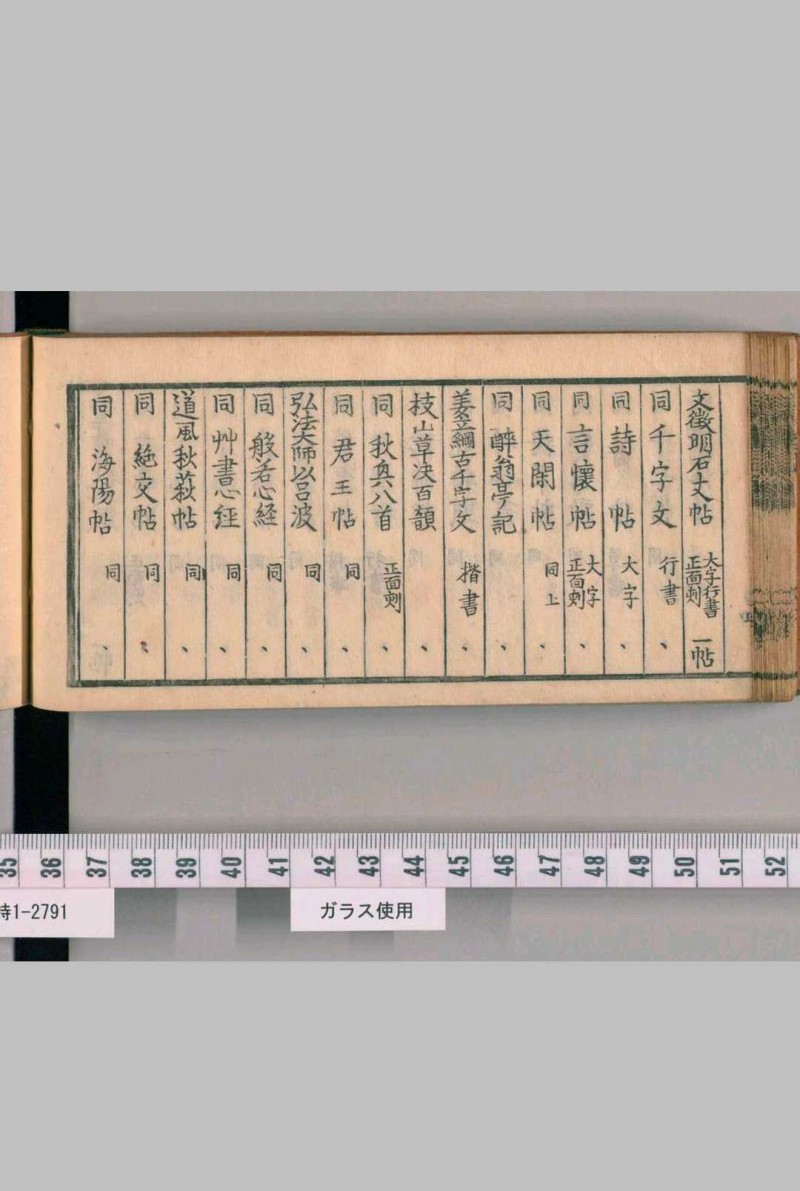 文徴明石丈帖 大字行書正面刻 一帖
同 千字文 行書 、
同 詩帖 大字 、
同 言懐帖 大字正面刻 、
同 天閑帖 同上 、
同 酔翁亭記 、
姜立綱古千字文 楷書 、
枝山草决百韻 、
同 秋興八首 正面刻 、
同 君王帖 同 、
弘法大師以呂波 同 、
同 般若心経 同 、
同 艸書心経 同 、
道風秋萩帖 同 、
同 絶交帖 同 、
同 海陽帖 同 、
35 36 37 38 39 40 41 42 43 44 45 46 47 48 49 50 51 52
特1-2791
ガラス使用